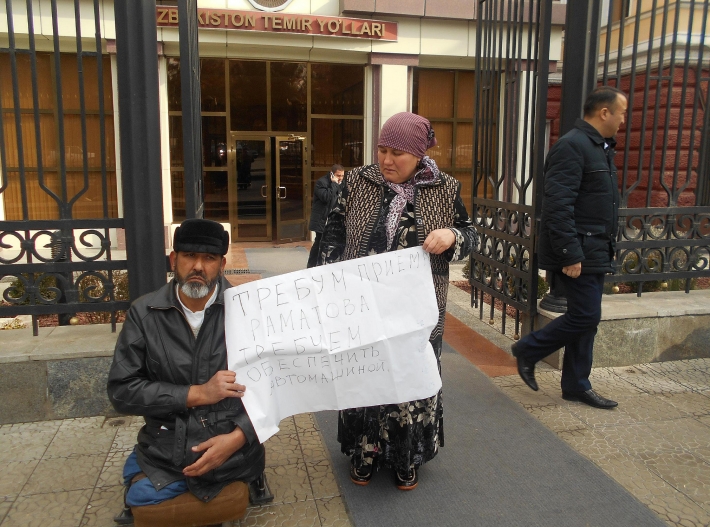 ZBEKISTON TEMIR YO'LLARI
ТРЕБУМ ПРИЁМ
РАМАТОВА
ТРЕБУЕМ
ОБЕСПЕЧИТЬ
АВТОМАШИНОЙ.